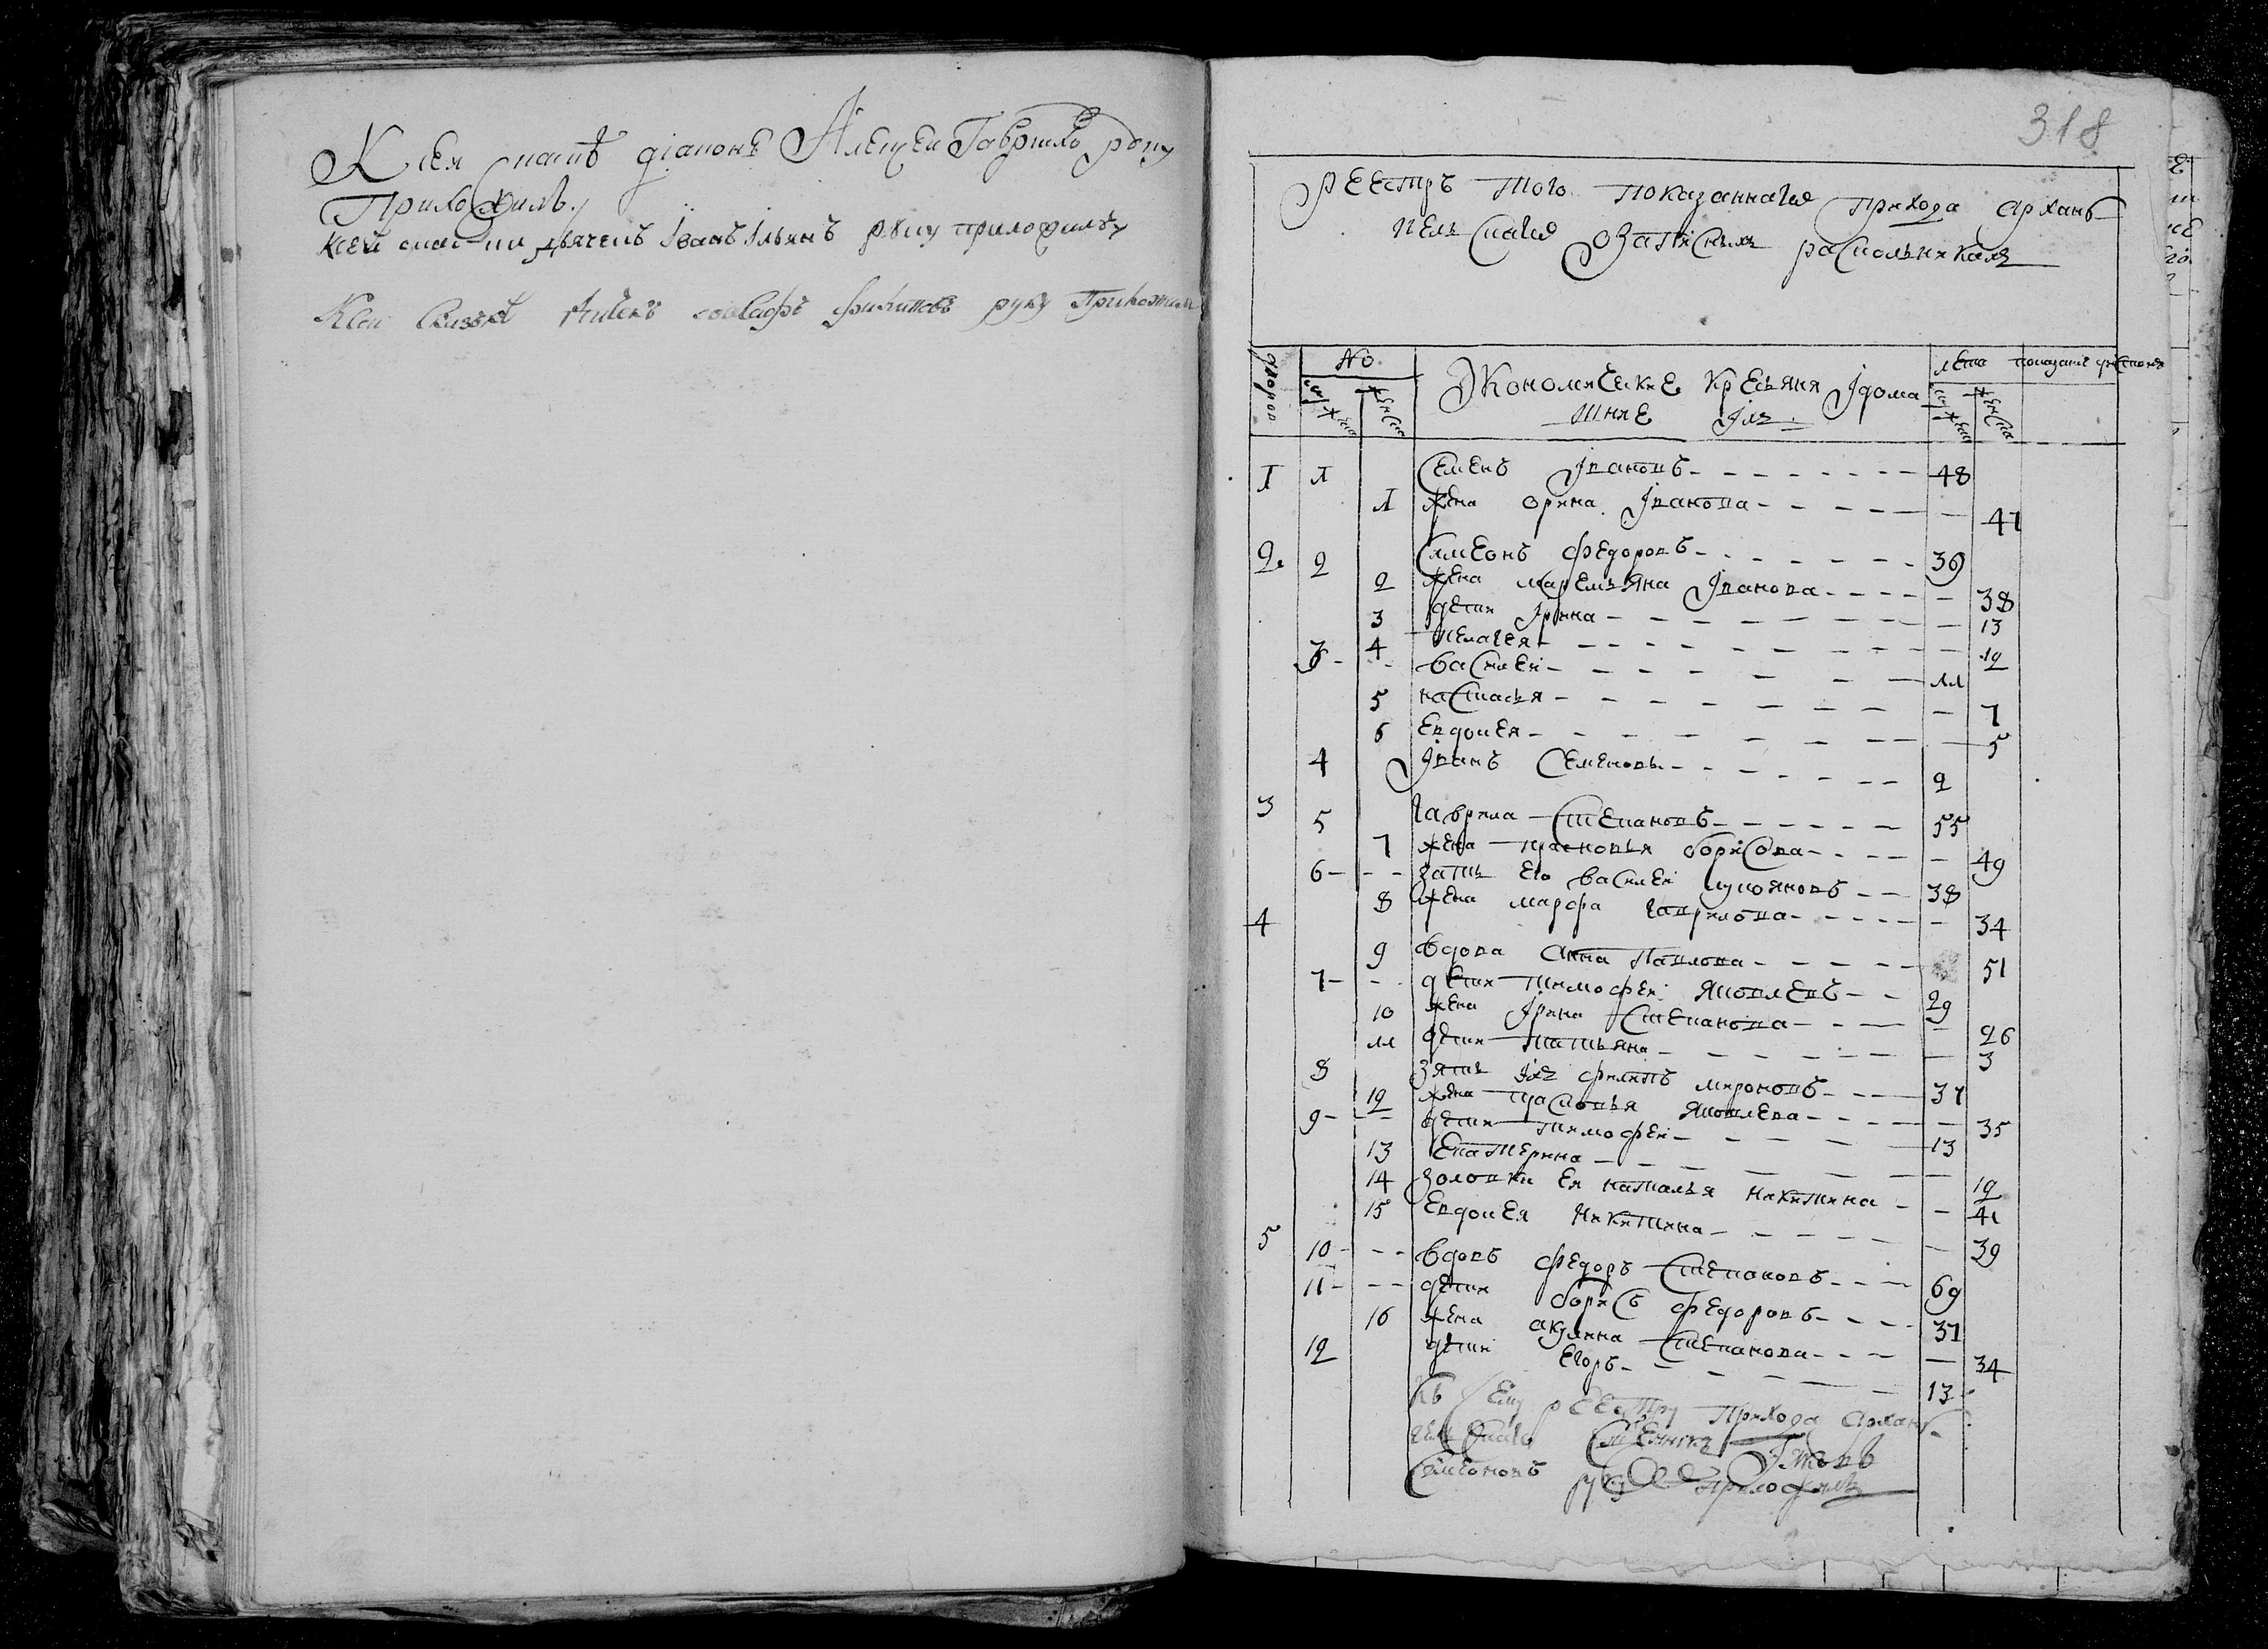 К сей скаскѣ дїаконъ Алеѯеи Гаврило руку
Приложилъ
К сей скаски дьячекъ Їванъ Їльинъ руку приложилъ
К сеи скаскѣ руку Приложил
318
Реестръ того показаннаго прихода архан
гелскаго о записныхъ расколникахъ
дворов
No
мужеска
женска
Экономические крестьяня Iдома
шние Iхъ
лета
мужеска
женска
показание
1 1 Семенъ Iвановъ 48
1 жена орина Iванова 41
2 2 Симеонъ федоровъ 39
2 жена маремьяна Iванова 38
3 дети Iрина 13
4 пелагея 12
3 василеи 11
5 настасья 7
6 евдокея 5
4 Iванъ Семеновъ 2
3 5 гаврила Степановъ 55
7 жена прасковья борисова 49
6 зать его василеи лукояновъ 38
8 жена марфа гаврилова 34
4 9 вдова анна павлова 51
7 дети тимофеи яковлевъ 29
10 жена Iрина Степанова 26
11 дети татьяна 3
8 зять Iхъ филипъ мироновъ 37
12 жена прасковья яковлева 35
9 дети тимофеи 13
13 екатерина 12
14 золовки ея наталья никитина 41
15 евдокея никитина 39
5 10 вдовъ федоръ Степановъ 69
11 дети борисъ федоровъ 37
16 жена акулина Степанова 34
12 дети егоръ 13
Къ сему реестру прихода архан
гельскаго сщенникъ
Симеоновъ руку приложилъ